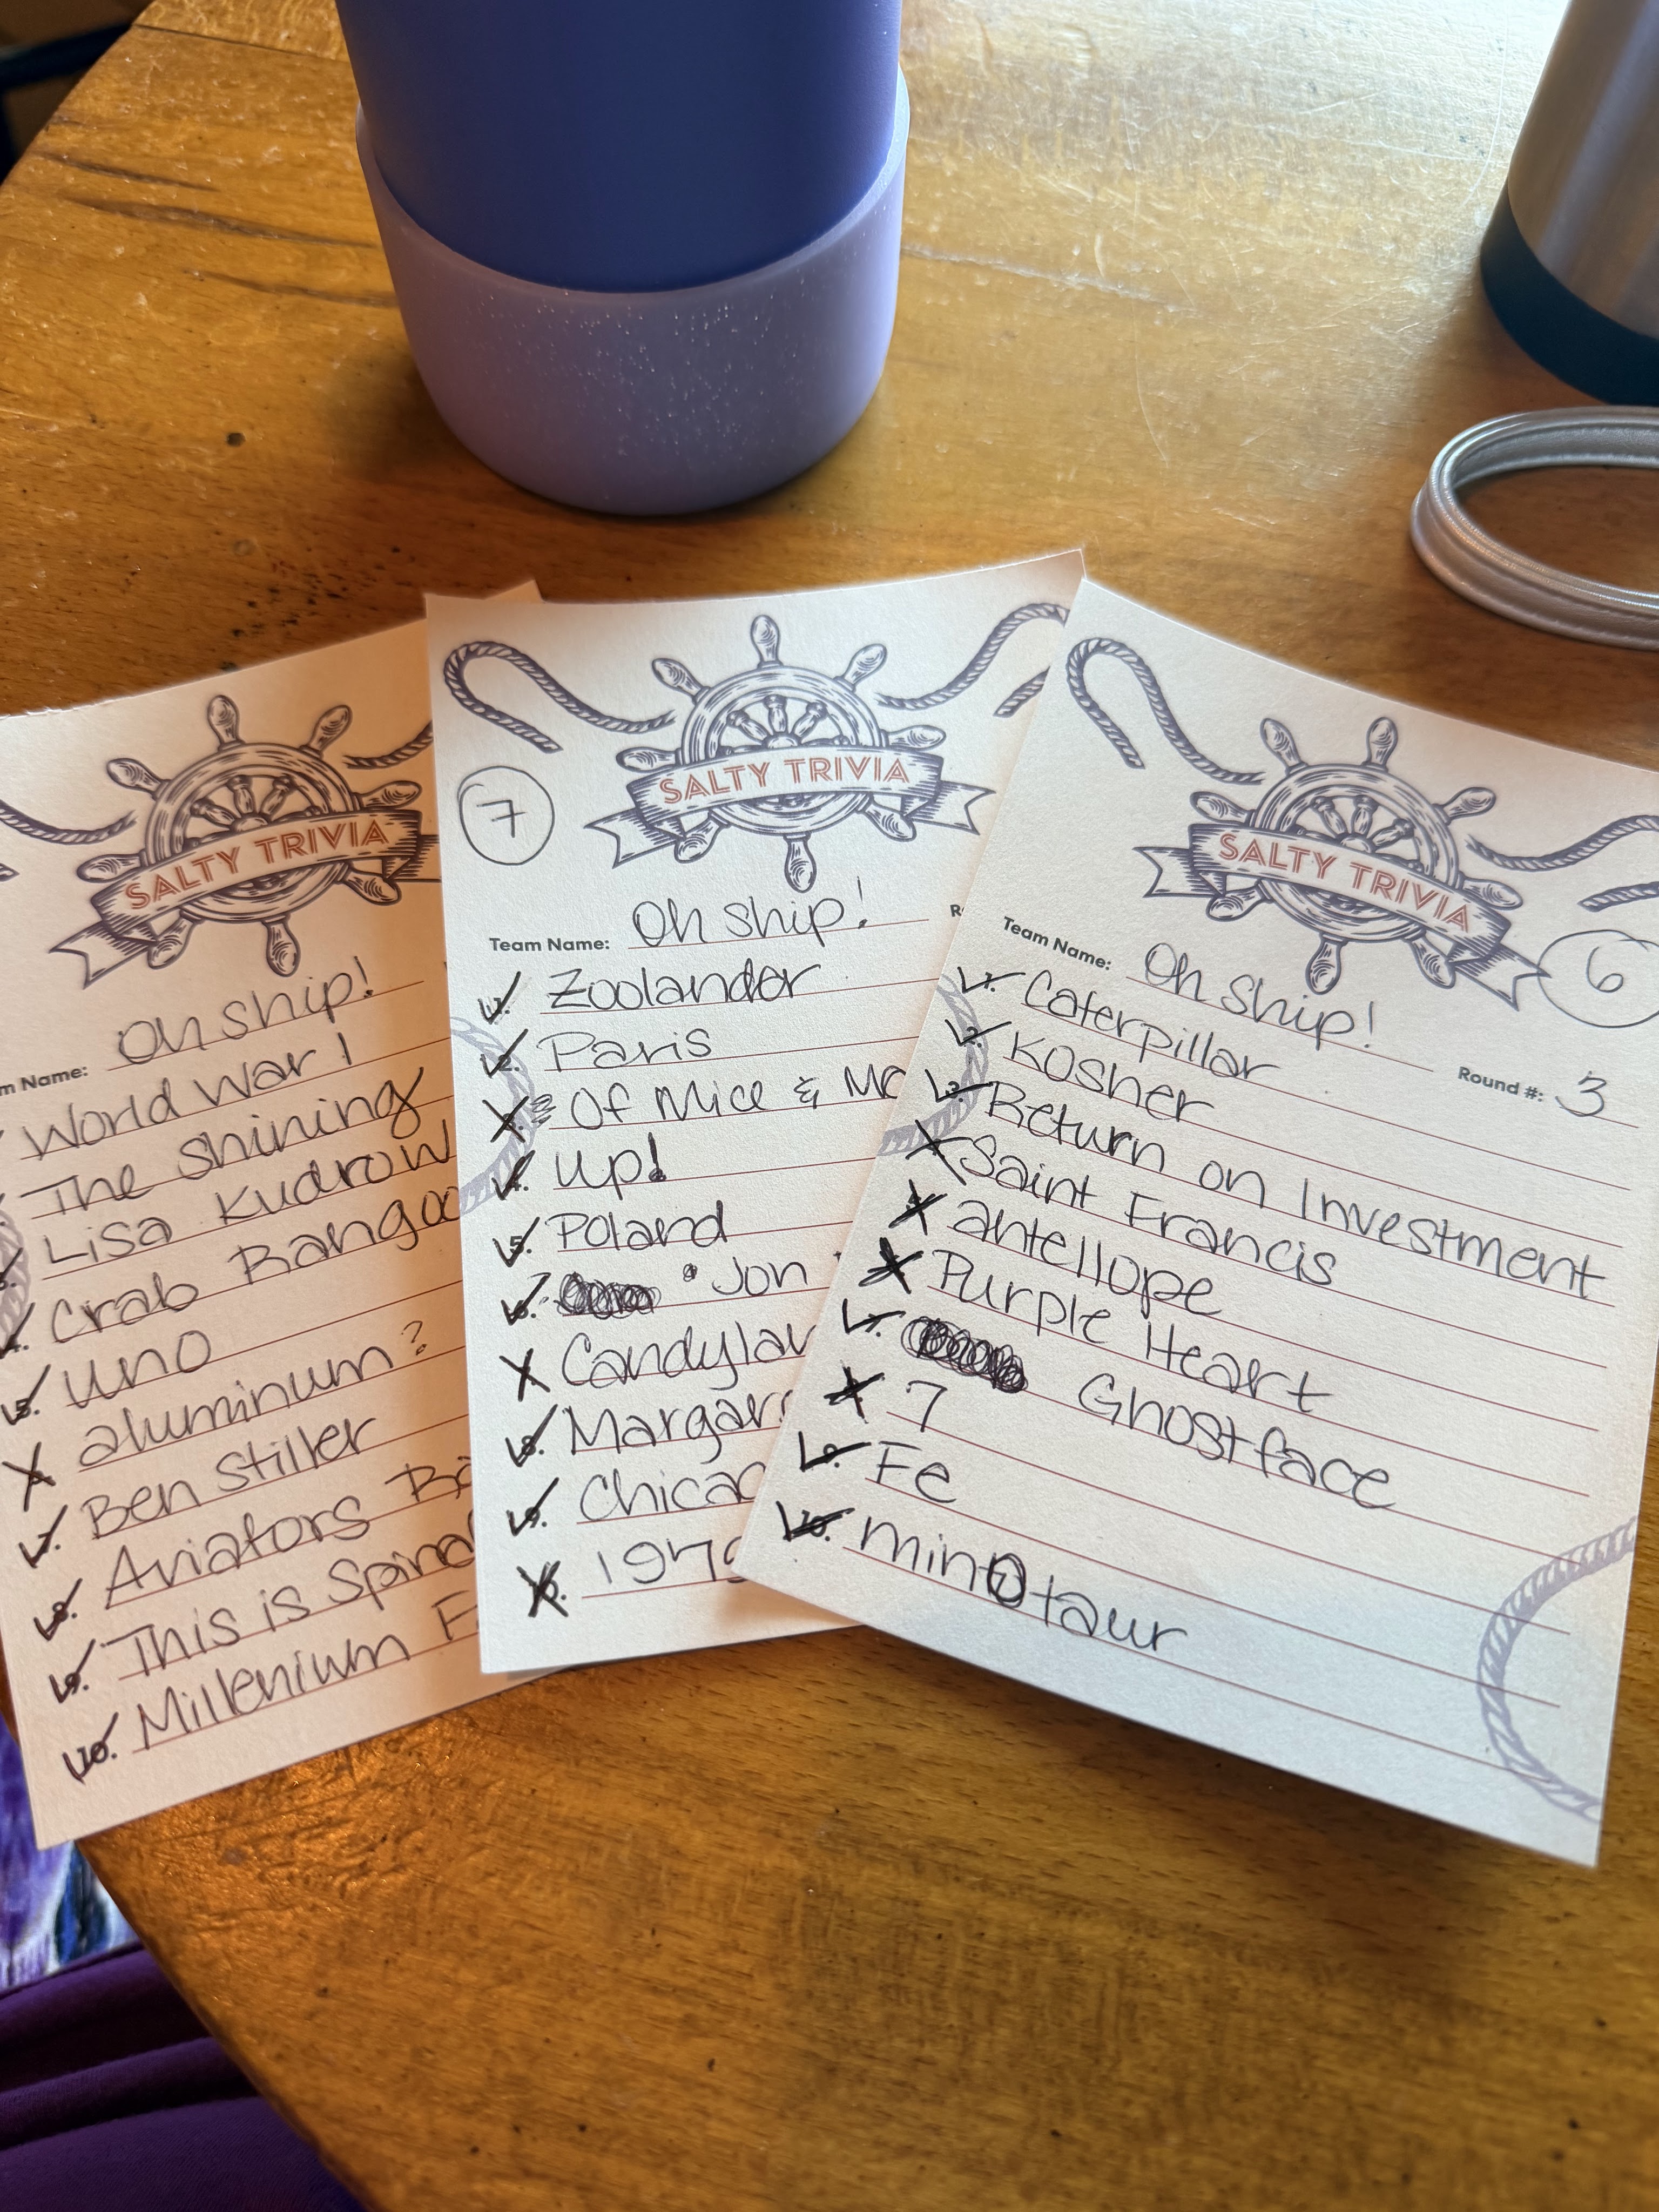 SALTY TRIVIA
m Name: Oh ship!
World War 1
The Shining
Lisa Kudrow
4. Crab Rangoo
5. Uno
aluminum?
7. Ben Stiller
8. Aviators
9. This is Spina
10. Millenium F
SALTY TRIVIA
7
Team Name: Oh ship!
1. Zoolander
2. Paris
Of Mice &
4. Up!
5. Poland
6. Jon
Candylan
8. Margar
9. Chicag
10. 1979
SALTY TRIVIA
6
Team Name: Oh ship!
Round #: 3
1. Caterpillar
2. Kosher
3. Return on Investment
Saint Francis
antellope
Purple Heart
7. Ghostface
7
9. Fe
10. minotaur